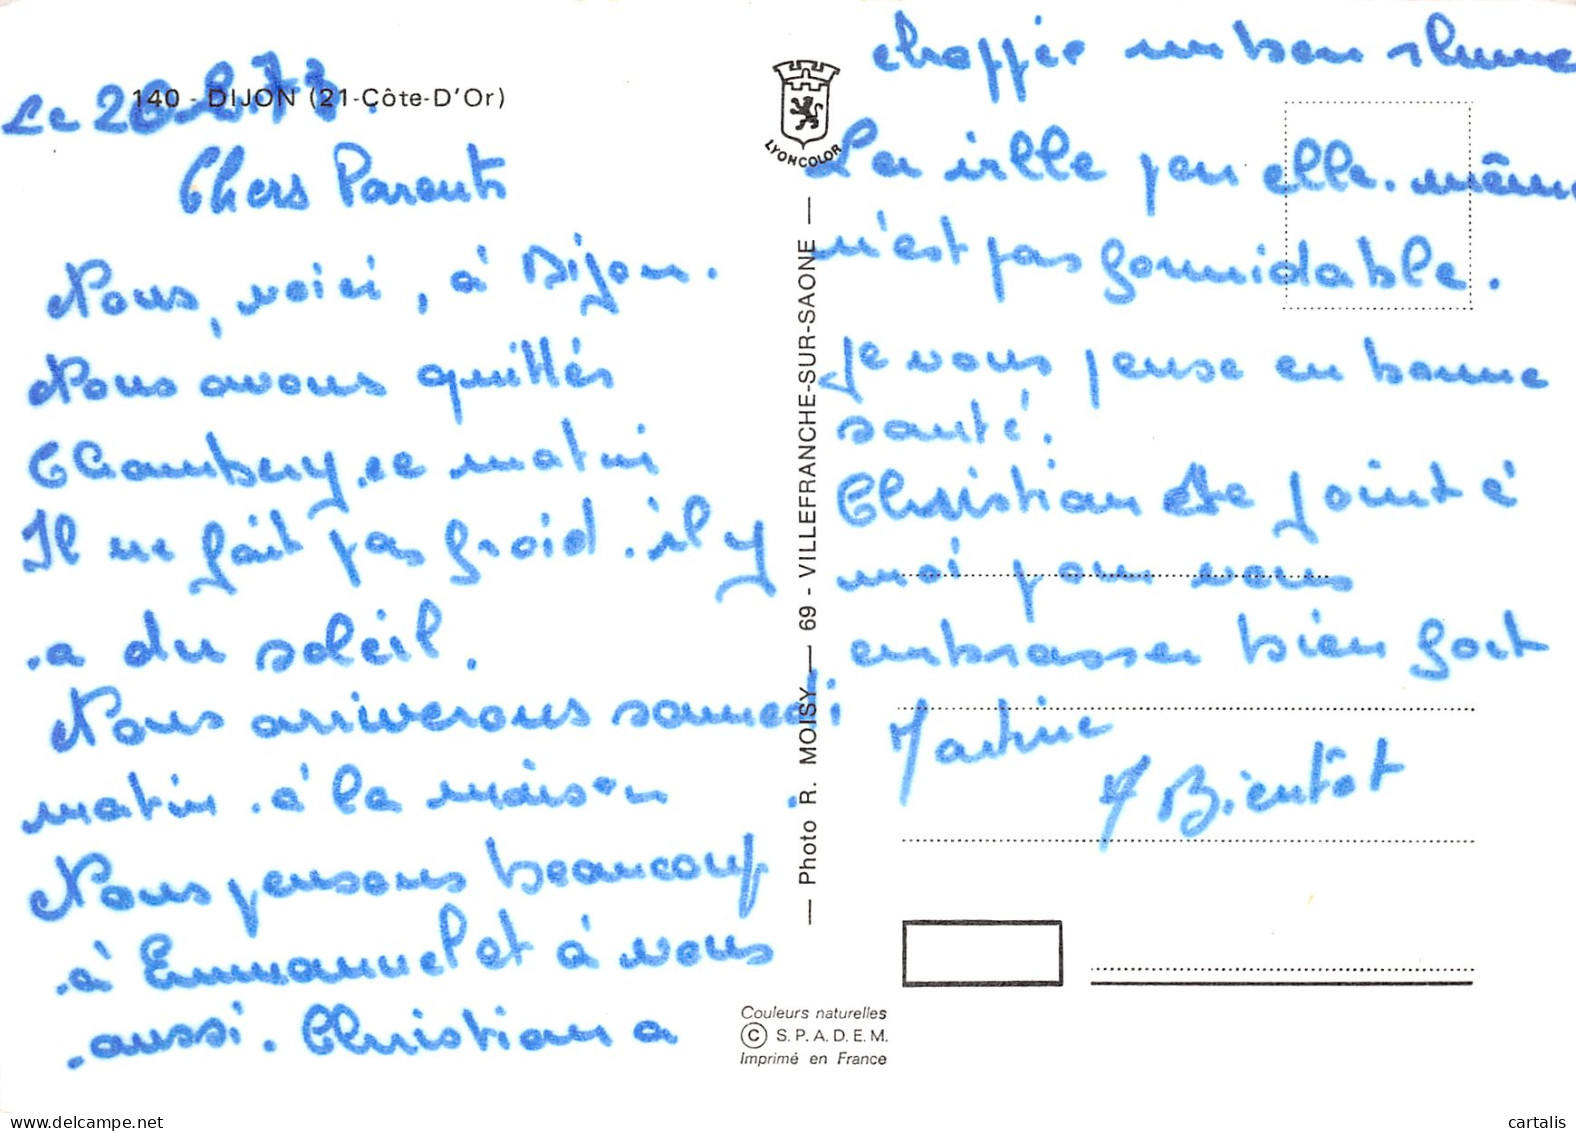 140 - DIJON (21-Côte-D'Or)
Le 20-2-73.
Chers Parents
Nous, voici, à Dijon.
Nous avons quittés
Chambery ce matin
Il ne fait pas froid. il y
a du soleil.
Nous arriverons samedi
matin à la maison.
Nous pensons beaucoup
à Emmanuel et à vous
aussi. Christian a
choppée un bon rhume
La ville par elle même
n'est pas formidable.
je vous pense en bonne
santé.
Christian se joint à
moi pour vous
embrasser bien fort
Martine
A Bientôt
LYONCOLOR
Photo R. MOISY — 69 - VILLEFRANCHE-SUR-SAONE
Couleurs naturelles
© S.P.A.D.E.M.
Imprimé en France
cartalis
delcampe.net